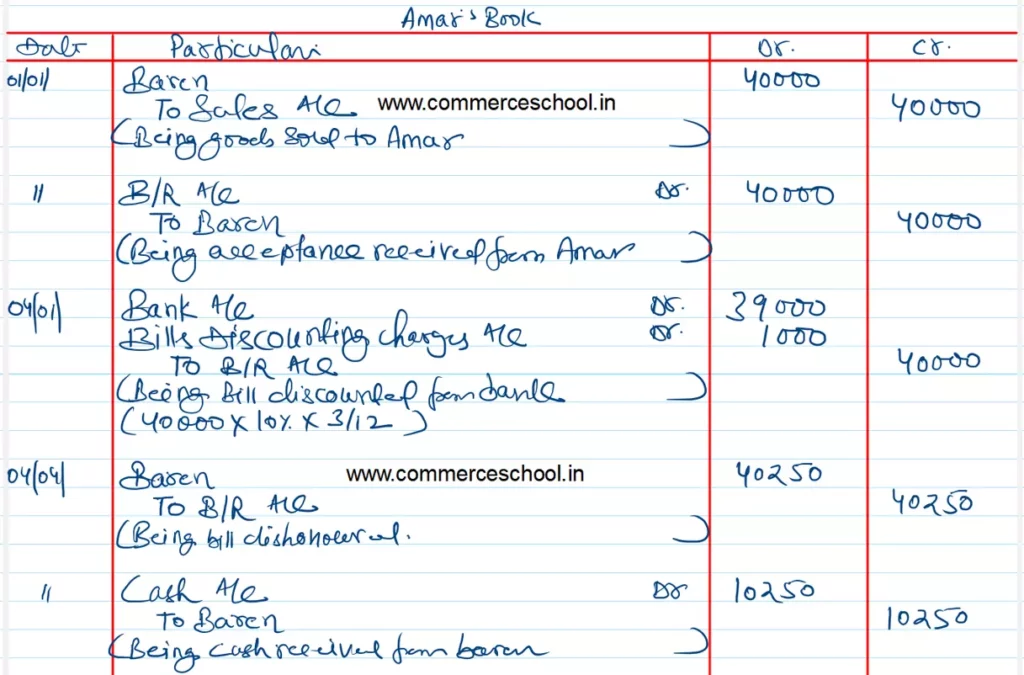 Amar's Book
Date Particulars Dr. Cr.
01/01/ Baren 40000
To Sales A/c www.commerceschool.in 40000
(Being goods sold to Amar)
" B/R A/c Dr. 40000
To Baren 40000
(Being acceptance received from Amar)
04/01/ Bank A/c Dr. 39000
Bills Discounting charges A/c Dr. 1000
To B/R A/c 40000
(Being Bill discounted from bank)
(40000 X 10% X 3/12)
04/04/ Baren www.commerceschool.in 40250
To B/R A/c 40250
(Being bill dishonoured.)
" Cash A/c Dr 10250
To Baren 10250
(Being cash received from baren)